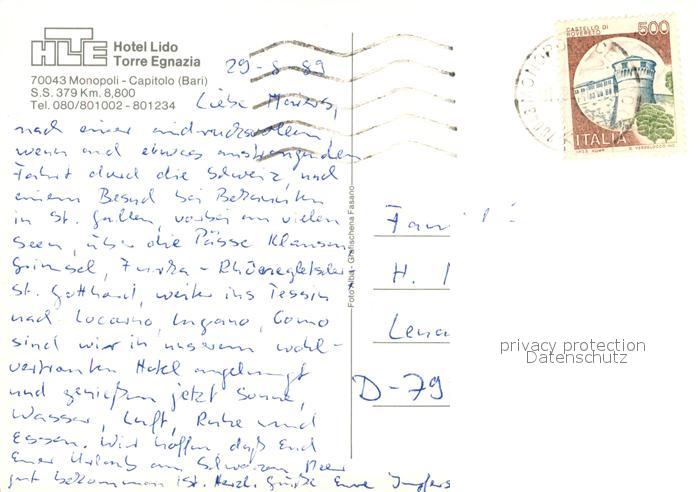 HLTE
Hotel Lido
Torre Egnazia
70043 Monopoli - Capitolo (Bari)
S.S. 379 Km. 8,800
Tel. 080/801002 - 801234
29-8-89
Liebe
nach einer eindrucksvollen
wenn auch etwas anstrengenden
Fahrt durch die Schweiz, nach
einem Besuch bei Bekannten
in St. Gallen, vorbei an vielen
Seen, über die Pässe Klausen,
Grimsel, Furka - Rhonegletscher
St. Gotthard, weiter ins Tessin
nach Locarno, Lugano, Como
sind wir in unserem wohl-
vertrauten Hotel angelangt
und genießen jetzt Sonne,
Wasser, Luft, Ruhe und
Essen. Wir hoffen, daß Euch
Euer Urlaub am Schwarzen Meer
gut bekommen ist. Herzl. Grüße Eure
Foto Alba - Grafischena Fasano
CASTELLO DI
ROVERETO
500
ITALIA
Fam
H.
Lena
D-79
privacy protection
Datenschutz